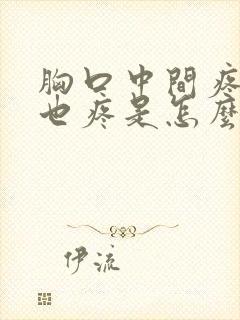 胸口中間疼
也疼是怎麼
伊流